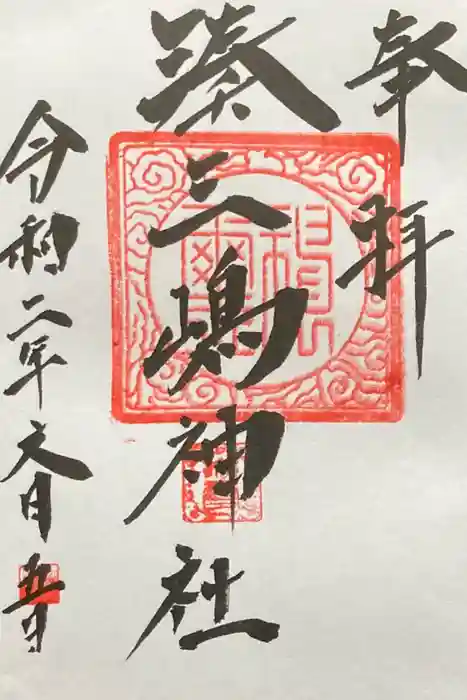 奉拝
湊三嶋神社
令和二年文月五日